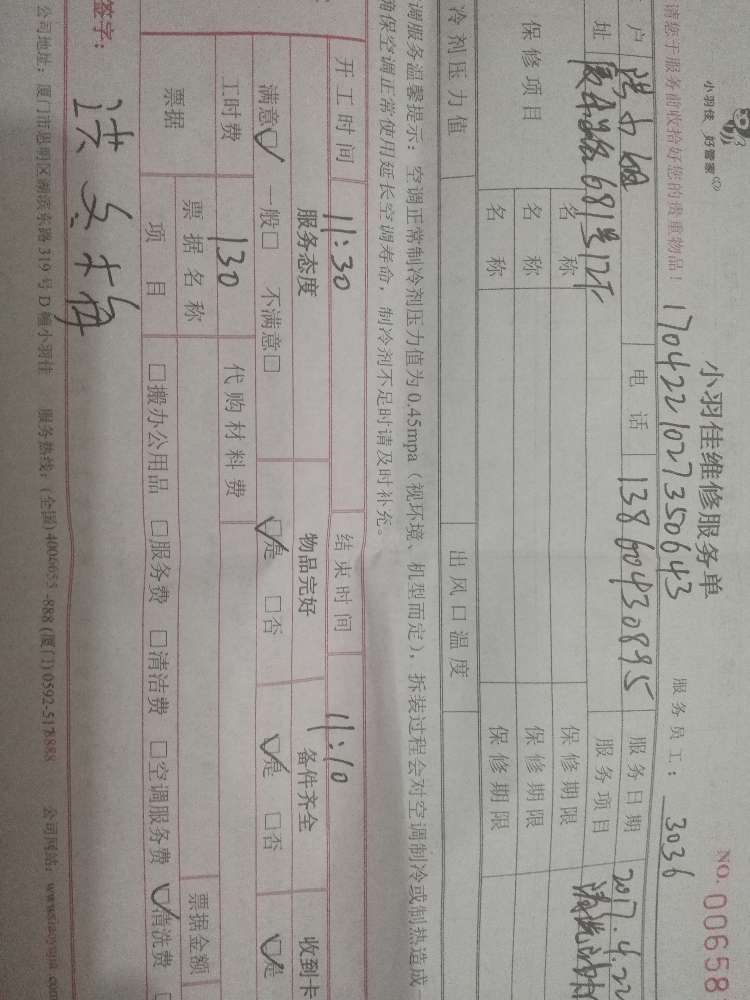 小羽佳 好管家
小羽佳维修服务单
NO. 00658
请您于服务前收拾好您的贵重物品！
1704221027350643
服务员工：
3036
户
电话
13860430895
服务日期
2017.4.22
址
681号
服务项目
保修项目
名称
保修期限
名称
保修期限
名称
保修期限
冷剂压力值
出风口温度
调服务温馨提示：空调正常制冷剂压力值为0.45mpa（视环境、机型而定），拆装过程会对空调制冷或制热造成
确保空调正常使用延长空调寿命，制冷剂不足时请及时补充。
开工时间
11:30
结束时间
11:10
服务态度
物品完好
备件齐全
收到卡
满意☑ 一般□ 不满意□
☑是 □否
☑是 □否
☑是
工时费
130
代购材料费
票据
票据名称
票据金额
项目
□搬办公用品 □服务费 □清洁费 □空调服务费 ☑清洗费 □
签字：
洪
梅
公司地址：厦门市思明区湖滨东路319号D幢小羽佳 服务热线：(全国)4006655-888(厦门)0592-5178888 公司网站：www.xiaoyujia.com